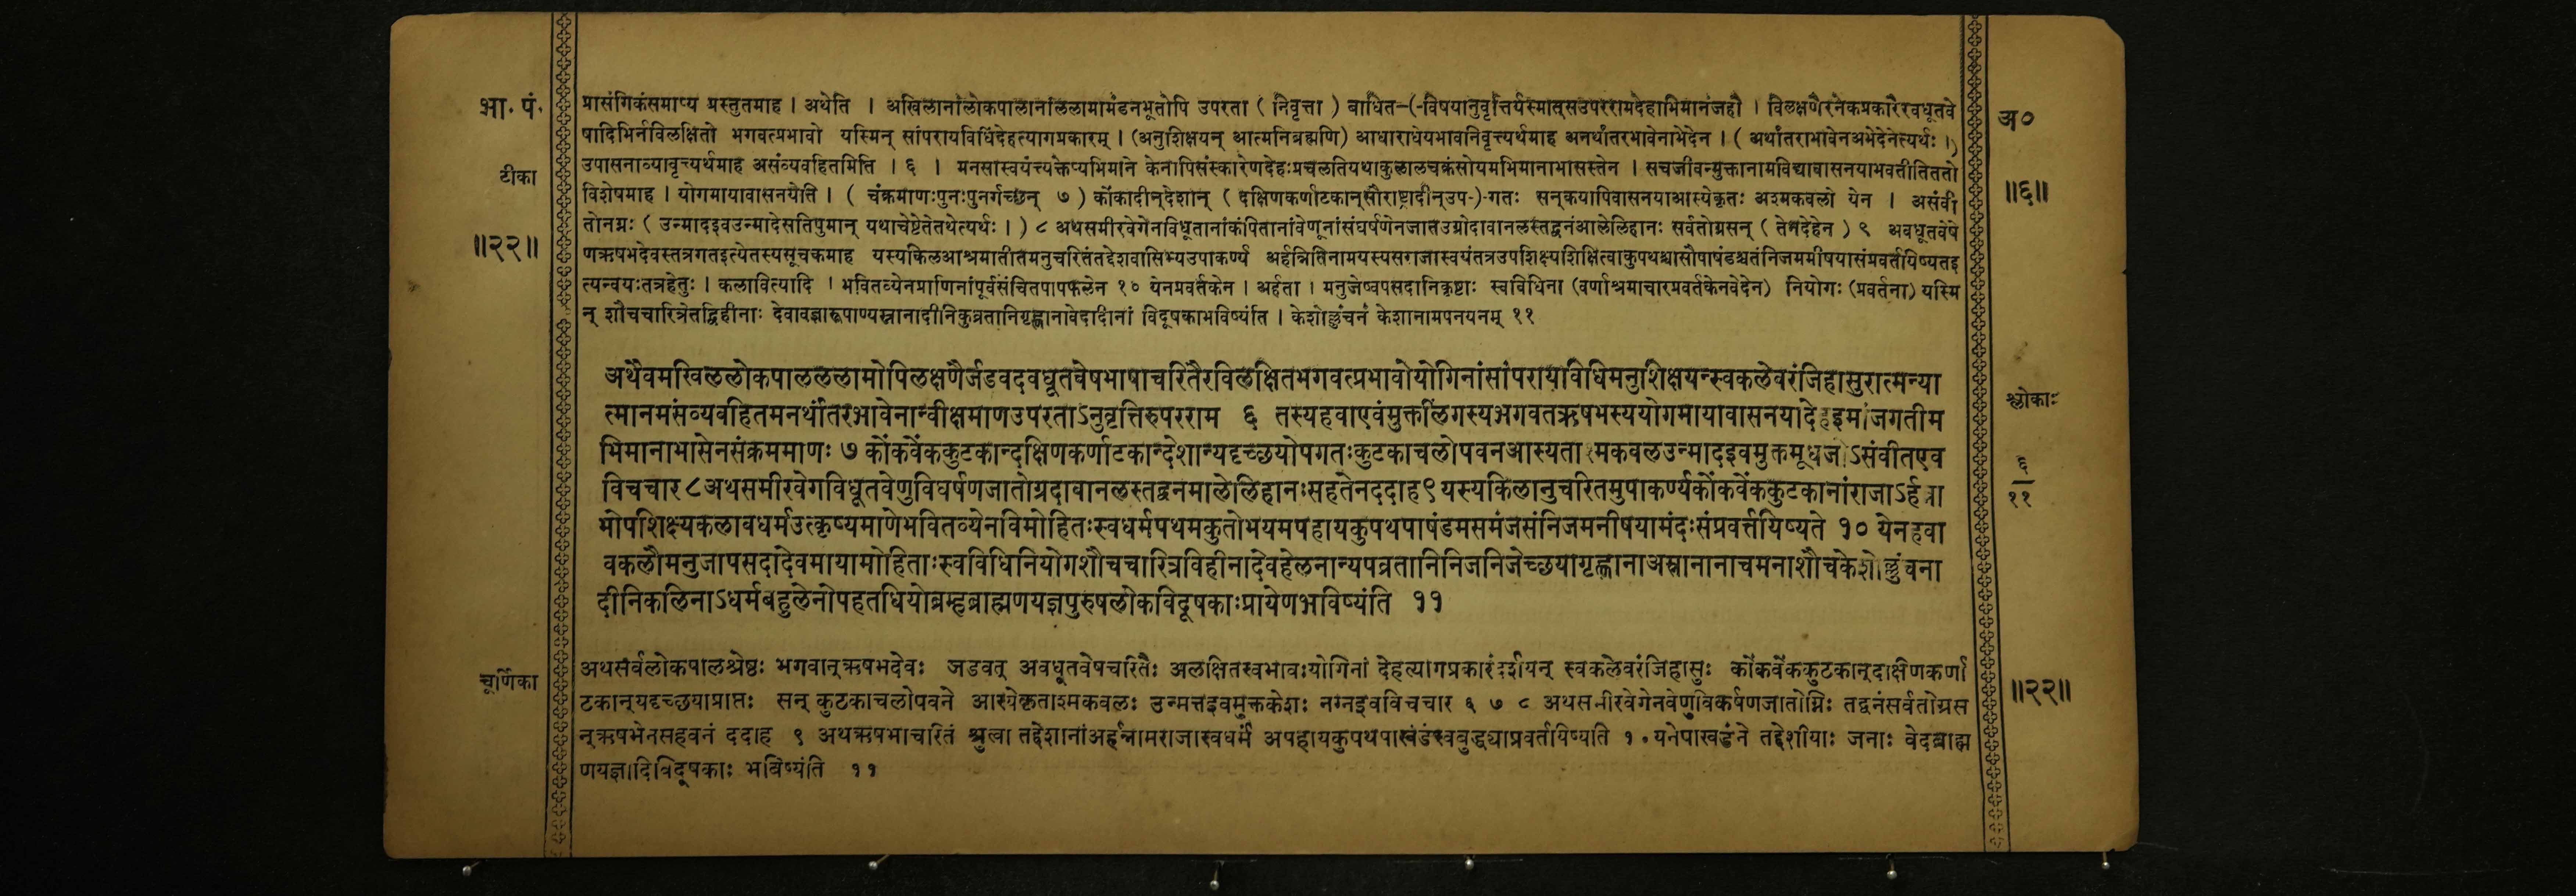 भा. पं.
टीका
॥२२॥
प्रासंगिकंसमाप्य प्रस्तुतमाह । अथेति । अखिलानांलोकपालानांललामामंडनभूतोपि उपरता ( निवृत्ता ) बाधित-(-विषयानुवृत्तिर्यस्मात्सउपररामदेहाभिमानंजहौ । विलक्षणैरनेकप्रकारैरवधूतवे
षादिभिर्नविलक्षितो भगवत्प्रभावो यस्मिन् सांपरायविधिंदेहत्यागप्रकारम् । (अनुशिक्षयन् आत्मनिब्रह्मणि) आधाराधेयभावनिवृत्त्यर्थमाह अनर्थांतरभावेनाभेदेन । ( अर्थांतराभावेनअभेदेनेत्यर्थः ।)
उपासनाव्यावृत्त्यर्थमाह असंव्यवहितमिति । ६ । मनसास्वयंत्यक्तेप्यभिमाने केनापिसंस्कारेणदेहःप्रचलतियथाकुलालचक्रंसोयमभिमानाभासस्तेन । सचजीवन्मुक्तानामविद्यावासनयाभवतीतिततो
विशेषमाह । योगमायावासनयेति । ( चंक्रमाणःपुनःपुनर्गच्छन् ७ ) कोंकादीन्देशान् ( दक्षिणकर्णाटकान्सौराष्ट्रादीन्उप-)-गतः सन्कयापिवासनयाआस्येकृतः अश्मकवलो येन । असंवी
तोनग्नः ( उन्मादइवउन्मादेसतिपुमान् यथाचेष्टेतेतथेत्यर्थः । ) ८ अथसमीरवेगेनविधूतानांकंपितानांवेणूनांसंघर्षणेनजातउग्रोदावानलस्तद्वनंआलेलिहानः सर्वतोग्रसन् ( तेनदेहेन ) ९ अवधूतवेषे
णऋषभदेवस्तत्रगतइत्येतस्यसूचकमाह यस्यकिलआश्रमातीतमनुचरितंतद्देशवासिभ्यउपाकर्ण्य अर्हन्नितिनामयस्यसराजास्वयंतत्रउपशिक्ष्यशिक्षित्वाकुपथश्चासौपाषंडश्चतंनिजमनीषयासंप्रवर्तयिष्यतइ
त्यन्वयःतत्रहेतुः । कलावित्यादि । भवितव्येनप्राणिनांपूर्वसंचितपापफलेन १० येनप्रवर्तकेन । अर्हता । मनुजेष्वपसदानिकृष्टाः स्वविधिना (वर्णाश्रमाचारप्रवर्तकेनवेदेन) नियोगः (प्रवर्तना) यस्मि
न् शौचचारित्रेतद्विहीनाः देवावज्ञारूपाण्यस्नानादीनिकुव्रतानिगृह्णानावेदादीनां विदूषकाभविष्यंति । केशोल्लुंचनं केशानामपनयनम् ११
अथैवमखिललोकपालललामोपिलक्षणैर्जडवदवधूतवेषभाषाचरितैरविलक्षितभगवत्प्रभावोयोगिनांसांपरायविधिमनुशिक्षयन्स्वकलेवरंजिहासुरात्मन्या
त्मानमसंव्यवहितमनर्थांतरभावेनान्वीक्षमाणउपरताऽनुवृत्तिरुपरराम ६ तस्यहवाएवंमुक्तलिंगस्यभगवतऋषभस्ययोगमायावासनयादेहइमांजगतीम
भिमानाभासेनसंक्रममाणः ७ कोंकवेंककुटकान्दक्षिणकर्णाटकान्देशान्यदृच्छयोपगतःकुटकाचलोपवनआस्यता मकवलउन्मादइवमुक्तमूर्धजोऽसंवीतएव
विचचार ८ अथसमीरवेगविधूतवेणुविघर्षणजातोग्रदावानलस्तद्वनमालेलिहानःसहतेनददाह ९ यस्यकिलानुचरितमुपाकर्ण्यकोंकवेंककुटकानांराजाऽर्हन्ना
मोपशिक्ष्यकलावधर्मउत्कृष्यमाणेभवितव्येनविमोहितःस्वधर्मपथमकुतोभयमपहायकुपथपाषंडमसमंजसंनिजमनीषयामंदःसंप्रवर्त्तयिष्यते १० येनहवा
वकलौमनुजापसदादेवमायामोहिताःस्वविधिनियोगशौचचारित्रविहीनादेवहेलनान्यपव्रतानिनिजनिजेच्छयागृह्णानाअस्नानानाचमनाशौचकेशोल्लुंचना
दीनिकलिनाऽधर्मबहुलेनोपहतधियोब्रम्हब्राह्मणयज्ञपुरुषलोकविदूषकाःप्रायेणभविष्यंति ११
चूर्णिका
अथसर्वलोकपालश्रेष्ठः भगवान्ऋषभदेवः जडवत् अवधूतवेषचरितैः अलक्षितस्वभावःयोगिनां देहत्यागप्रकारंदर्शयन् स्वकलेवरंजिहासुः कोंकवेंककुटकान्दाक्षिणकर्णा
टकान्यदृच्छयाप्राप्तः सन् कुटकाचलोपवने आस्येकृताश्मकवलः उन्मत्तइवमुक्तकेशः नग्नइवविचचार ६ ७ ८ अथसमीरवेगेनवेणुविकर्षणजातोग्निः तद्वनंसर्वतोग्रस
न्ऋषभेनसहवनं ददाह ९ अथऋषभाचरितं श्रुत्वा तद्देशानांअर्हन्नामराजास्वधर्मं अपहायकुपथपाखंडंस्वबुद्ध्याप्रवर्तयिष्यति १० येनपाखंडेन तद्देशीयाः जनाः वेदब्राह्म
णयज्ञादिविदूषकाः भविष्यंति ११
अ०
॥६॥
श्लोकाः
६
११
॥२२॥